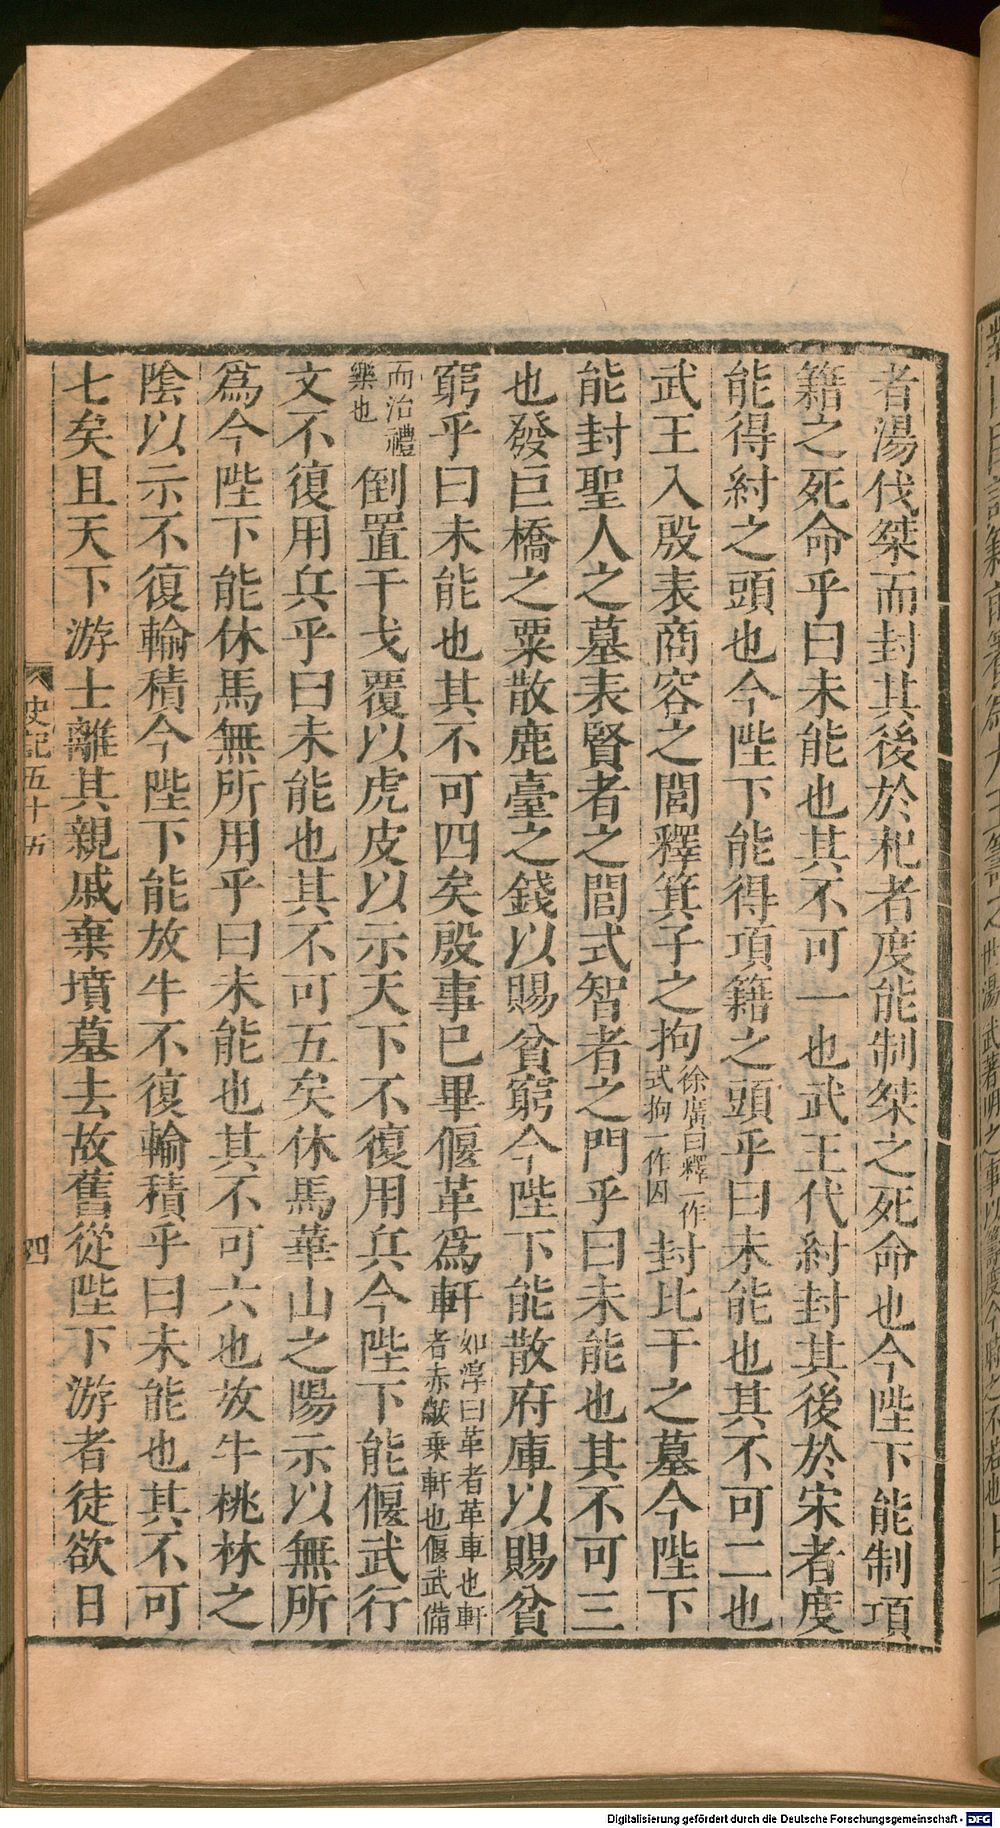 者湯伐桀而封其後於杞者度能制桀之死命也今陛下能制項
籍之死命乎曰未能也其不可一也武王代紂封其後於宋者度
能得紂之頭也今陛下能得項籍之頭乎曰未能也其不可二也
武王入殷表商容之閭釋箕子之拘徐廣曰釋一作式拘一作囚封比干之墓今陛下
能封聖人之墓表賢者之閭式智者之門乎曰未能也其不可三
也發巨橋之粟散鹿臺之錢以賜貧窮今陛下能散府庫以賜貧
窮乎曰未能也其不可四矣殷事已畢偃革爲軒如淳曰革者革車也軒者赤黻乗軒也偃武備
而治禮樂也倒置干戈覆以虎皮以示天下不復用兵今陛下能偃武行
文不復用兵乎曰未能也其不可五矣休馬華山之陽示以無所
爲今陛下能休馬無所用乎曰未能也其不可六也放牛桃林之
陰以示不復輸積今陛下能放牛不復輸積乎曰未能也其不可
七矣且天下游士離其親戚棄墳墓去故舊從陛下游者徒欲日
史記五十五
四
Digitalisierung gefördert durch die Deutsche Forschungsgemeinschaft - DFG